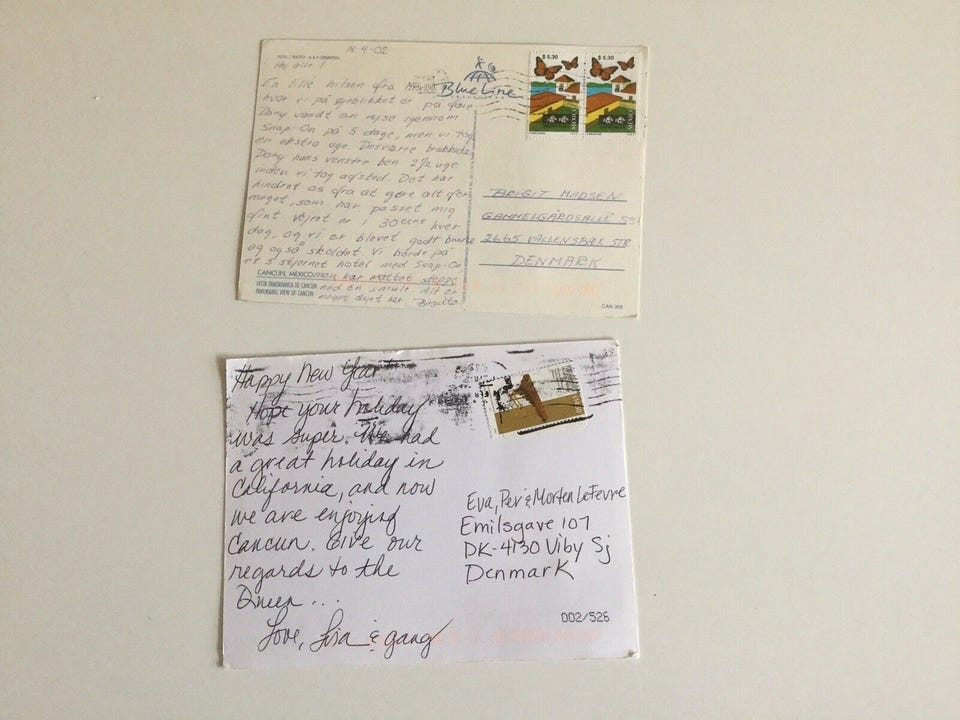 18-4-02
Hej alle!
En lille hilsen fra Mexico
hvor vi på øjeblikket er på ferie
Dany vandt en rejse igennem
Snap-On på 5 dage, men vi tog
en ekstra uge. Desværre brækkede
Dany hans venstre ben 2½ uge
inden vi tog afsted. Det har
hindret os fra at gøre alt for
meget, som har passet mig
fint. Vejret er i 30'erne hver
dag, og vi er blevet godt brune
og også skoldet. Vi boede på
et 5 stjernet hotel med Snap-On,
men har måttet steppe
ned en smule. Alt er
meget dyrt her. Birgitte
CANCUN, MEXICO
VISTA PANORAMICA DE CANCUN
PANORAMIC VIEW OF CANCUN
Blue Line
$ 6.30 $ 6.30
MEXICO
BRIGIT MADSEN
GAMMELGÅRDSALLÉ 55
2665 VALLENSBÆK STR
DENMARK
CAN 369
Happy New Year
Hope your holiday
was super. We had
a great holiday in
California, and now
we are enjoying
Cancun. Give our
regards to the
Queen...
Love, Lisa & gang
Eva, Per & Morten LeFevre
Emilsgave 107
DK-4130 Viby Sj
Denmark
002/526